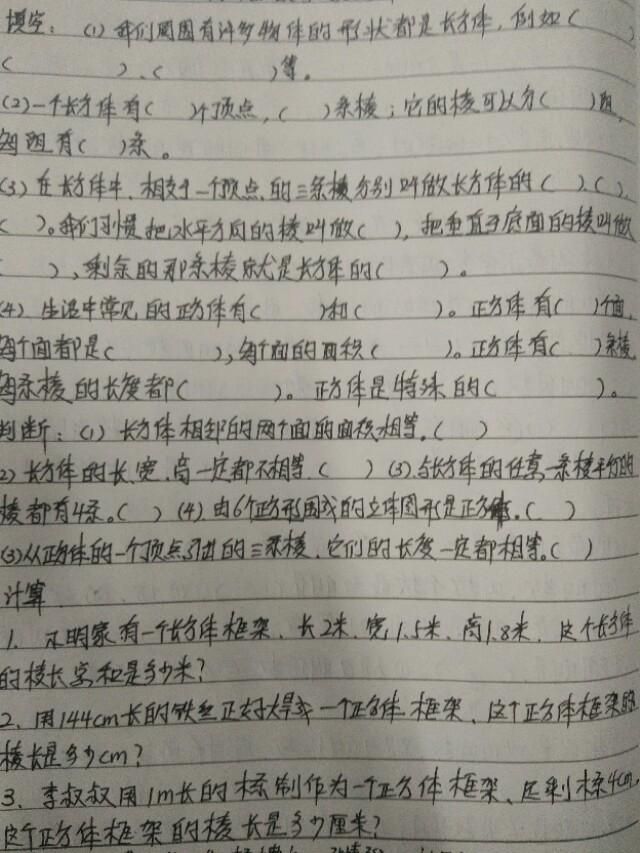 填空：(1) 我们周围有许多物体的形状都是长方体，例如(　　)
(　　)、(　　)等。
(2)一个长方体有(　)个顶点，(　)条棱；它的棱可以分(　)组，
每组有(　)条。
(3) 在长方体中，相交于一个顶点的三条棱分别叫做长方体的(　)、(　)、
(　)。我们习惯把水平方向的棱叫做(　)，把垂直于底面的棱叫做
(　)，剩余的那条棱就是长方体的(　)。
(4) 生活中常见的正方体有(　　)和(　　)。正方体有(　)个面，
每个面都是(　　)，每个面的面积(　　)。正方体有(　)条棱，
每条棱的长度都(　　)。正方体是特殊的(　　)。
判断：(1) 长方体相邻的两个面的面积相等。(　)
2) 长方体的长、宽、高一定都不相等。(　) (3).与长方体的任意一条棱平行的
棱都有4条。(　) (4).由6个正方形围成的立体图形是正方体。(　)
(5)从正方体的一个顶点引出的三条棱，它们的长度一定都相等。(　)
计算
1. 明家有一个长方体框架，长2米，宽1.5米，高1.8米，这个长方体
的棱长总和是多少米？
2、用144cm长的铁丝正好焊成一个正方体框架，这个正方体框架的
棱长是多少cm？
3、李叔叔用1m长的木条制作为一个正方体框架，还剩木条4cm，
这个正方体框架的棱长是多少厘米？